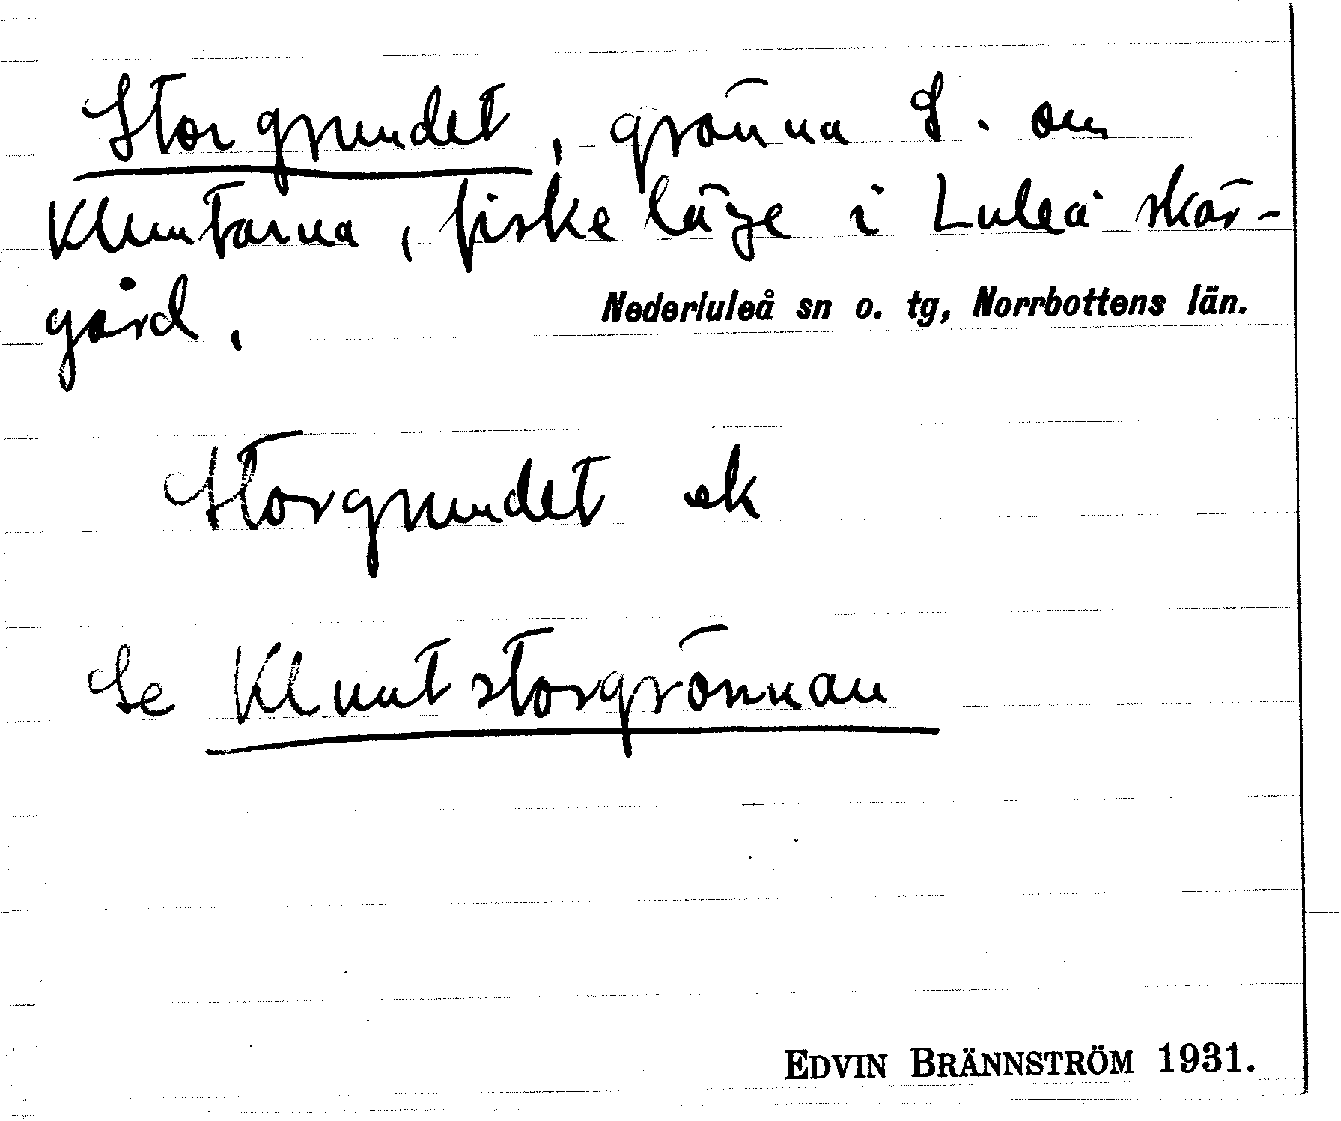 Storgrundet, grönna S. om
Kluntarna, fiskeläge i Luleå skär-
gård.
Nederluleå sn o. tg, Norrbottens län.
Storgrundet ek
Se Kluntstorgrönnan
EDVIN BRÄNNSTRÖM 1931.